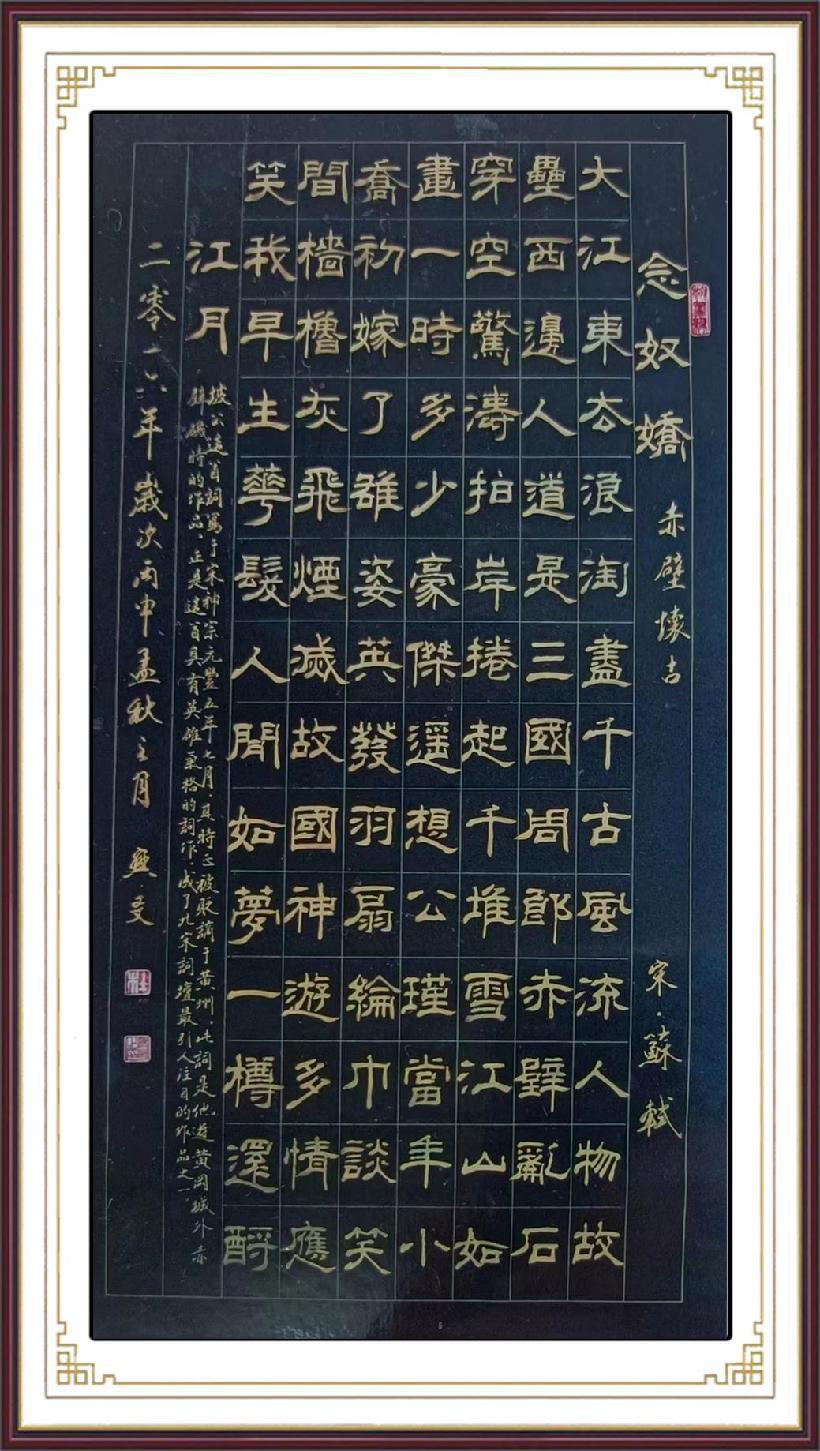 念奴嬌 赤壁懷古 宋·蘇軾
大江東去浪淘盡千古風流人物故
壘西邊人道是三國周郎赤壁亂石
穿空驚濤拍岸捲起千堆雪江山如
畫一時多少豪傑遥想公瑾當年小
喬初嫁了雄姿英發羽扇綸巾談笑
間檣櫓灰飛煙滅故國神遊多情應
笑我早生華髮人間如夢一樽還酹
江月
坡公這首詞寫于宋神宗元豐五年七月,其時正被貶謫于黄州,此詞是他遊黄岡城外赤
磯時的作品,正是這首具有英雄氣格的詞作,成了北宋詞壇最引人注目的作品之一。
二零一六年歲次丙申孟秋之月
杜